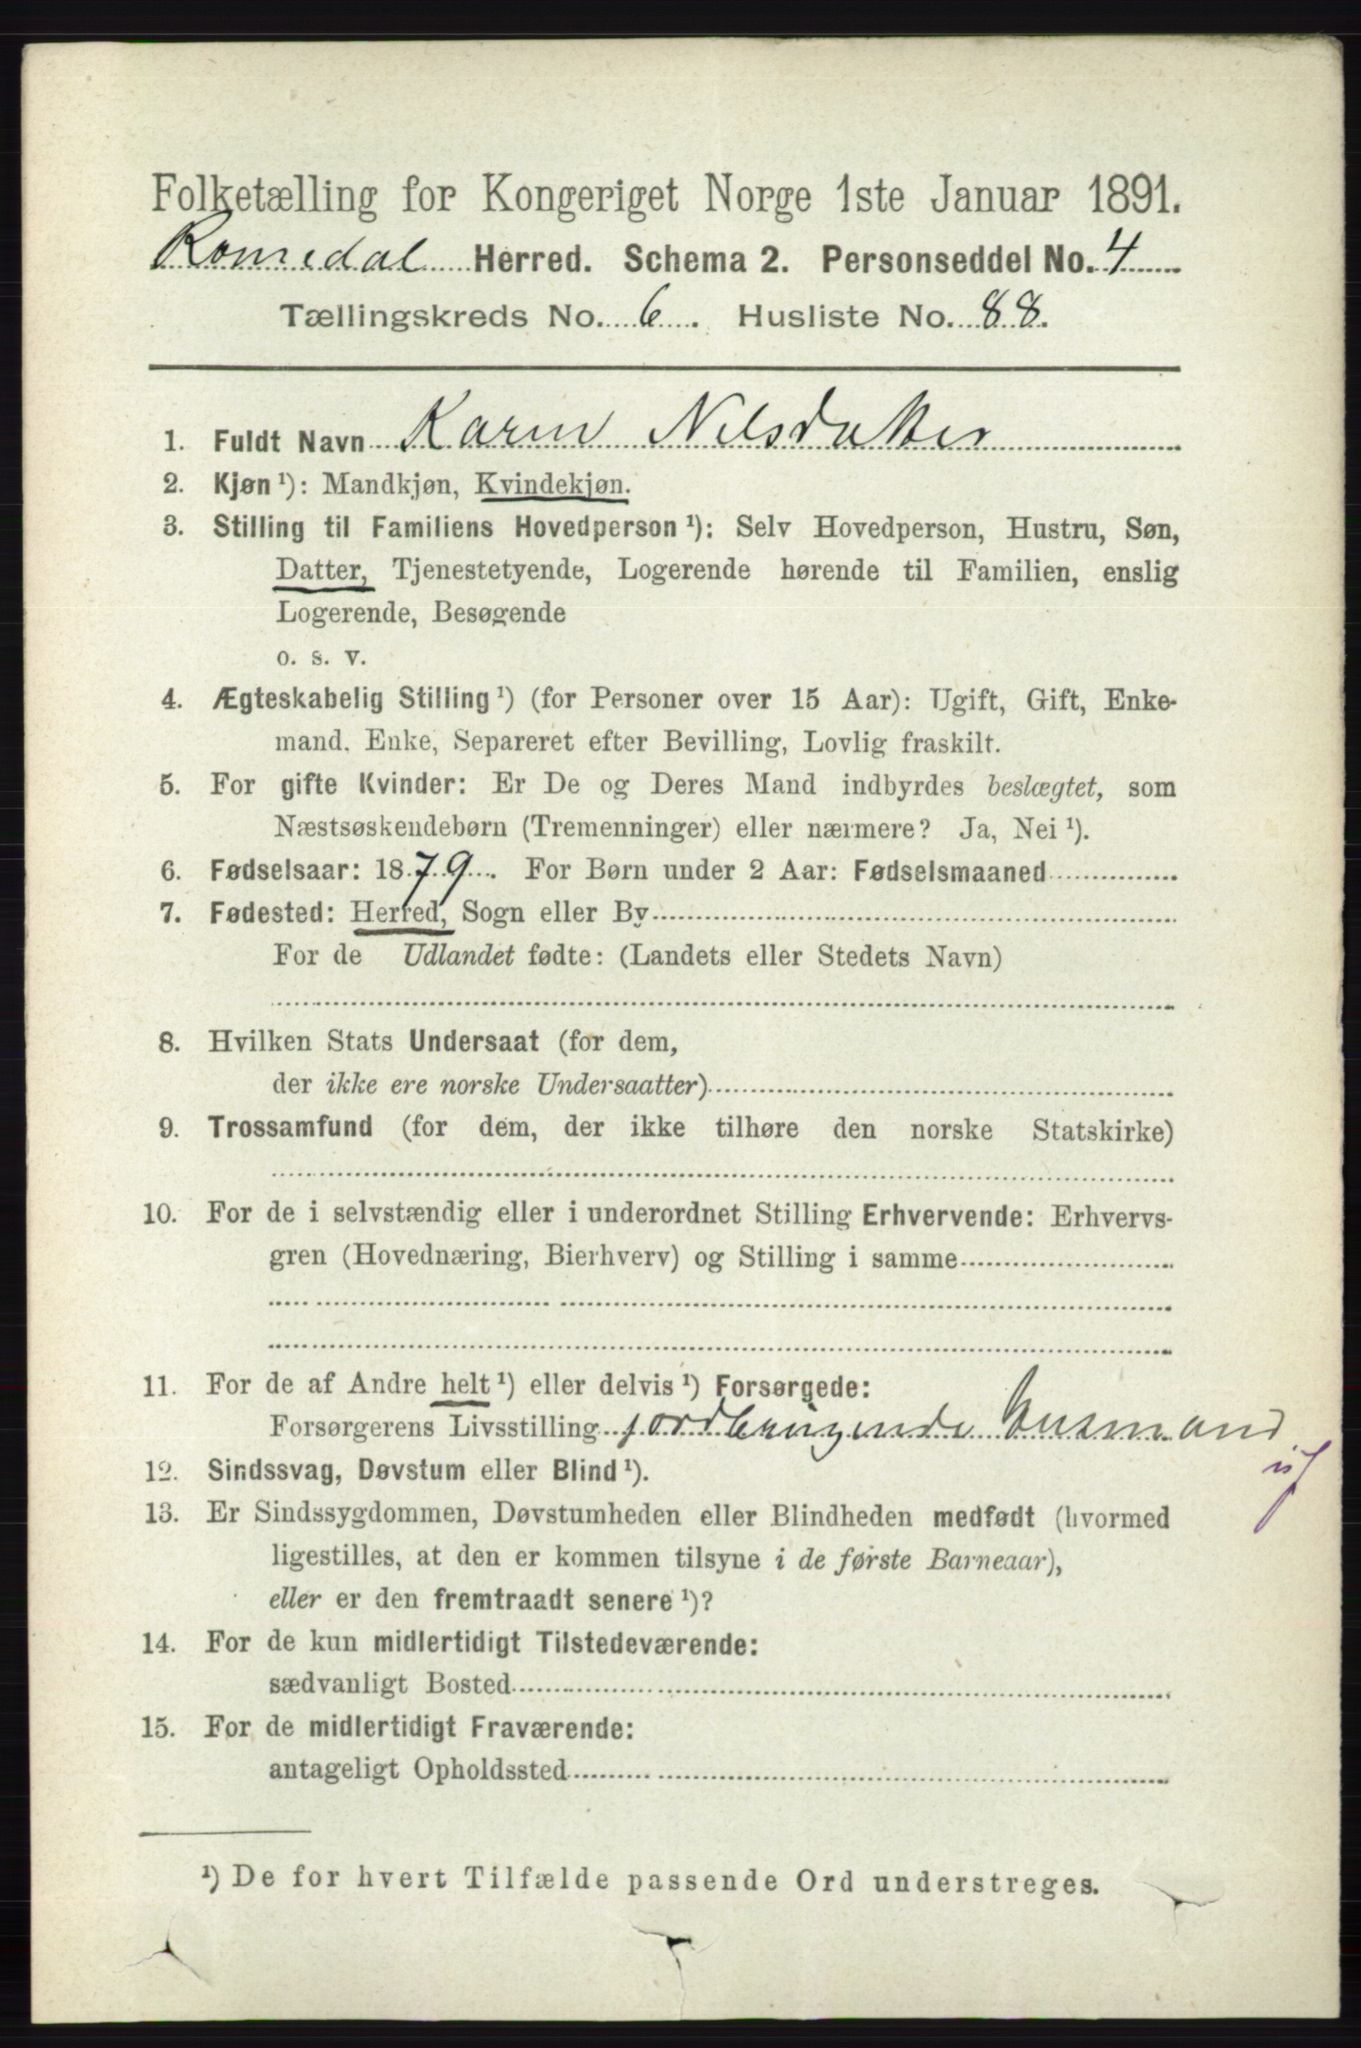 Folketælling for Kongeriget Norge 1ste Januar 1891.
Romedal Herred. Schema 2. Personseddel No. 4
Tællingskreds No. 6. Husliste No. 88.
1. Fuldt Navn Karen Nilsdatter
2. Kjøn ¹): Mandkjøn, Kvindekjøn.
3. Stilling til Familiens Hovedperson ¹): Selv Hovedperson, Hustru, Søn,
Datter, Tjenestetyende, Logerende hørende til Familien, enslig
Logerende, Besøgende
o. s. v.
4. Ægteskabelig Stilling ¹) (for Personer over 15 Aar): Ugift, Gift, Enke-
mand, Enke, Separeret efter Bevilling, Lovlig fraskilt.
5. For gifte Kvinder: Er De og Deres Mand indbyrdes beslægtet, som
Næstsøskendebørn (Tremenninger) eller nærmere? Ja, Nei ¹).
6. Fødselsaar: 1879. For Børn under 2 Aar: Fødselsmaaned
7. Fødested: Herred, Sogn eller By
For de Udlandet fødte: (Landets eller Stedets Navn)
8. Hvilken Stats Undersaat (for dem,
der ikke ere norske Undersaatter)
9. Trossamfund (for dem, der ikke tilhøre den norske Statskirke)
10. For de i selvstændig eller i underordnet Stilling Erhvervende: Erhvervs-
gren (Hovednæring, Bierhverv) og Stilling i samme
11. For de af Andre helt ¹) eller delvis ¹) Forsørgede:
Forsørgerens Livsstilling jordbrugende Husmand
12. Sindssvag, Døvstum eller Blind ¹).
13. Er Sindssygdommen, Døvstumheden eller Blindheden medfødt (hvormed
ligestilles, at den er kommen tilsyne i de første Barneaar),
eller er den fremtraadt senere ¹)?
14. For de kun midlertidigt Tilstedeværende:
sædvanligt Bosted
15. For de midlertidigt Fraværende:
antageligt Opholdssted
¹) De for hvert Tilfælde passende Ord understreges.